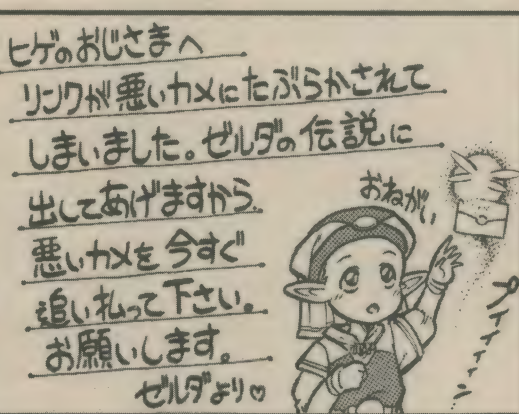 ヒゲのおじさまへ
リンクが悪いカメにたぶらかされて
しまいました。ゼルダの伝説に
出してあげますから
悪いカメを今すぐ
追い払って下さい。
お願いします。
ゼルダより♡
おねがい
プイイイィン